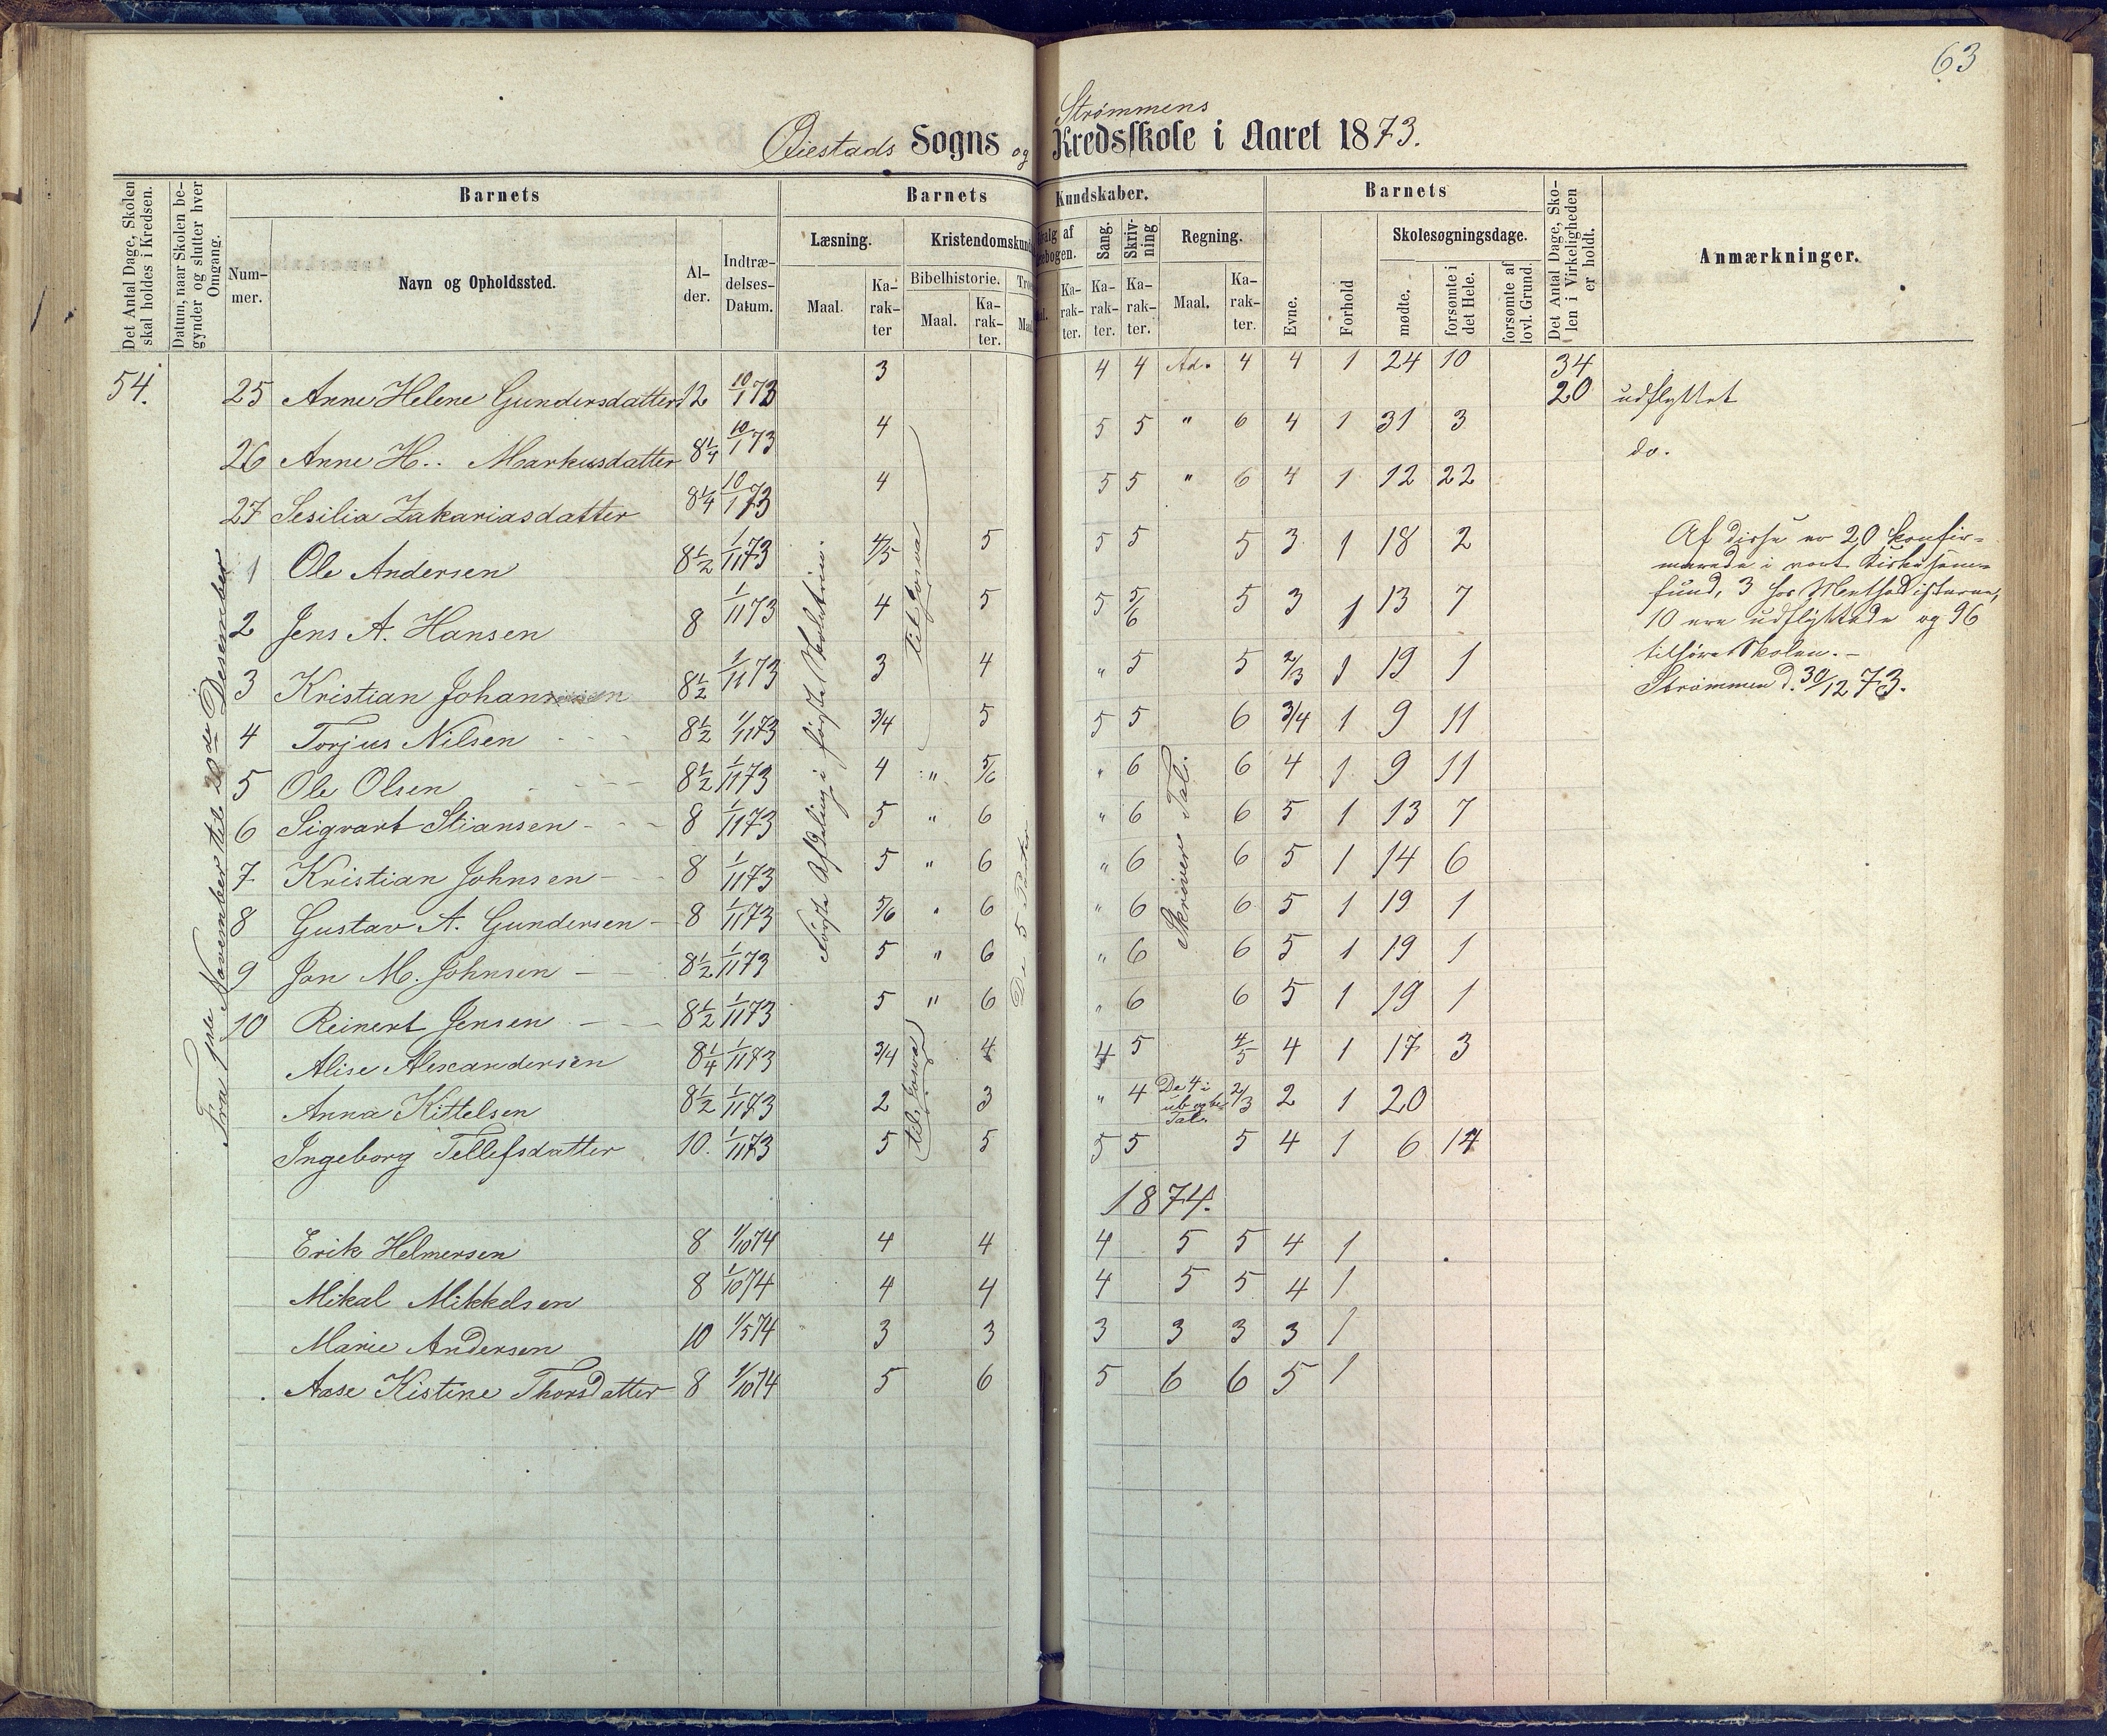 63
Strømmens
Øiestads Sogns og Kredsskole i Aaret 1873.
Det Antal Dage, Skolen skal holdes i Kredsen.
Datum, naar Skolen begynder og slutter hver Omgang.
Barnets
Nummer.
Navn og Opholdssted.
Alder.
Indtrædelses-Datum.
Barnets Kundskaber.
Læsning.
Maal.
Karakter
Kristendomskund
Bibelhistorie.
Maal.
Karakter.
Tro
Maal
valg af
ebogen.
Karakter.
Sang.
Karakter.
Skrivning
Karakter.
Regning.
Maal.
Karakter.
Barnets
Evne.
Forhold
Skolesøgningsdage.
mødte.
forsømte i det Hele.
forsømte af lovl. Grund.
Det Antal Dage, Skolen i Virkeligheden er holdt.
Anmærkninger.
54. 25 Anne Helene Gundersdatter 12 10/1 73 3 4 4 Ad. 4 4 1 24 10 34
20 udflyttet
26 Anne H.. Markusdatter 8 1/4 10/1 73 4 5 5 " 6 4 1 31 3 do.
27 Sesilia Zakariasdatter 8 1/4 10/1 73 4 5 5 " 6 4 1 12 22
1 Ole Andersen 8 1/2 1/11 73 4/5 5 5 5 5 3 1 18 2
2 Jens A. Hansen 8 1/11 73 4 5 5 5/6 5 3 1 13 7
3 Kristian Johannesen 8 1/2 1/11 73 3 4 " 5 5 2/3 1 19 1
4 Torjus Nilsen 8 1/2 1/11 73 3/4 5 5 5 6 3/4 1 9 11
5 Ole Olsen 8 1/2 1/11 73 4 " 5/6 " 6 6 4 1 9 11
6 Sigvart Stiansen 8 1/11 73 5 " 6 " 6 6 5 1 13 7
7 Kristian Johnsen 8 1/11 73 5 " 6 " 6 6 5 1 14 6
8 Gustav A. Gundersen 8 1/11 73 5/6 " 6 " 6 6 5 1 19 1
9 Jon M. Johnsen 8 1/2 1/11 73 5 " 6 " 6 6 5 1 19 1
10 Reinert Jensen 8 1/2 1/11 73 5 " 6 " 6 6 5 1 19 1
Alise Alexandersen 8 1/4 1/11 73 3/4 4 4 5 4/5 4 1 17 3
Anna Kittelsen 8 1/2 1/11 73 2 3 " 4 De 4 i ub og be Tal. 2/3 2 1 20
Ingeborg Tellefsdatter 10. 1/11 73 5 5 5 5 5 4 1 6 14
Fra 1ste November til 20de Desember
første Afdeling i første Skoletrin.
til Josva
til Josva
De 5 Parter
Skriver Tal.
Af disse er 20 konfir-
merede i vort Kirkesam-
fund, 3 hos Methodisterne,
10 ere udflyttede og 96
tilhøre Skolen. –
Strømmen d. 30/12 73.
1874.
Erik Helmersen 8 1/10 74 4 4 4 5 5 4 1
Mikal Mikkelsen 8 1/10 74 4 4 4 5 5 4 1
Marie Andersen 10 1/5 74 3 3 3 3 3 3 1
Aase Kistine Thorsdatter 8 1/10 74 5 6 5 6 6 5 1